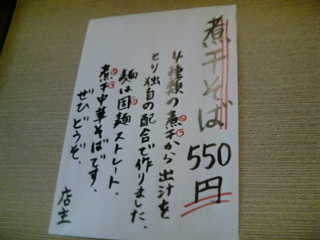 煮干そば550円
4種類の煮干から出汁を
とり独自の配合で作りました、
麺は固麺ストレート、
煮干中華そばです、
ぜひどうぞ、
店主